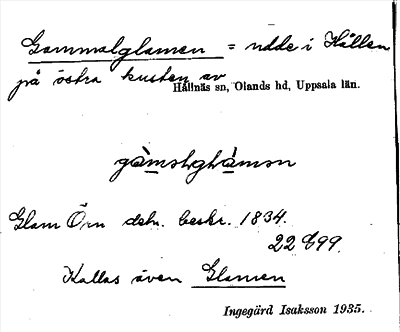 Gammalglamen = udde i Hållen
på östra kusten av
Hållnäs sn, Olands hd, Uppsala län.
Glam Örn debr. beskr. 1834.
22 899.
Kallas även Glamen
Ingegärd Isaksson 1935.